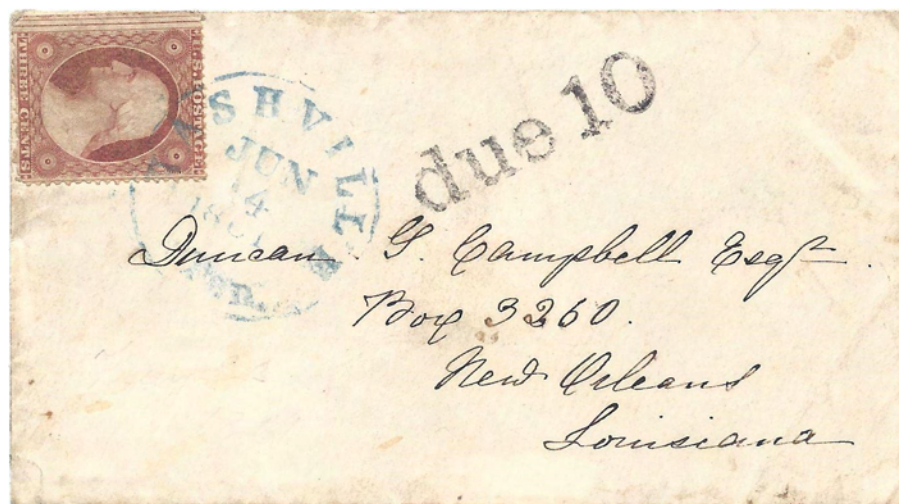 U.S. POSTAGE
THREE CENTS
NASHVILLE
JUN
14
1861
TEN.
due 10
Duncan G. Campbell Esqr.
Box 3260.
New Orleans
Louisiana